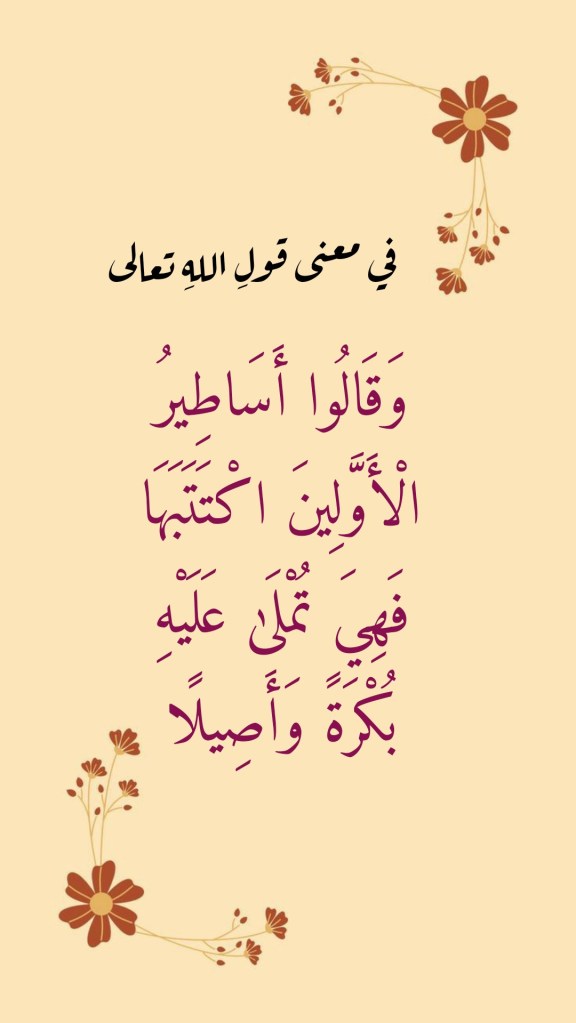 في معنى قولِ اللهِ تعالى
وَقَالُوا أَسَاطِيرُ
الْأَوَّلِينَ اكْتَتَبَهَا
فَهِيَ تُمْلَىٰ عَلَيْهِ
بُكْرَةً وَأَصِيلًا